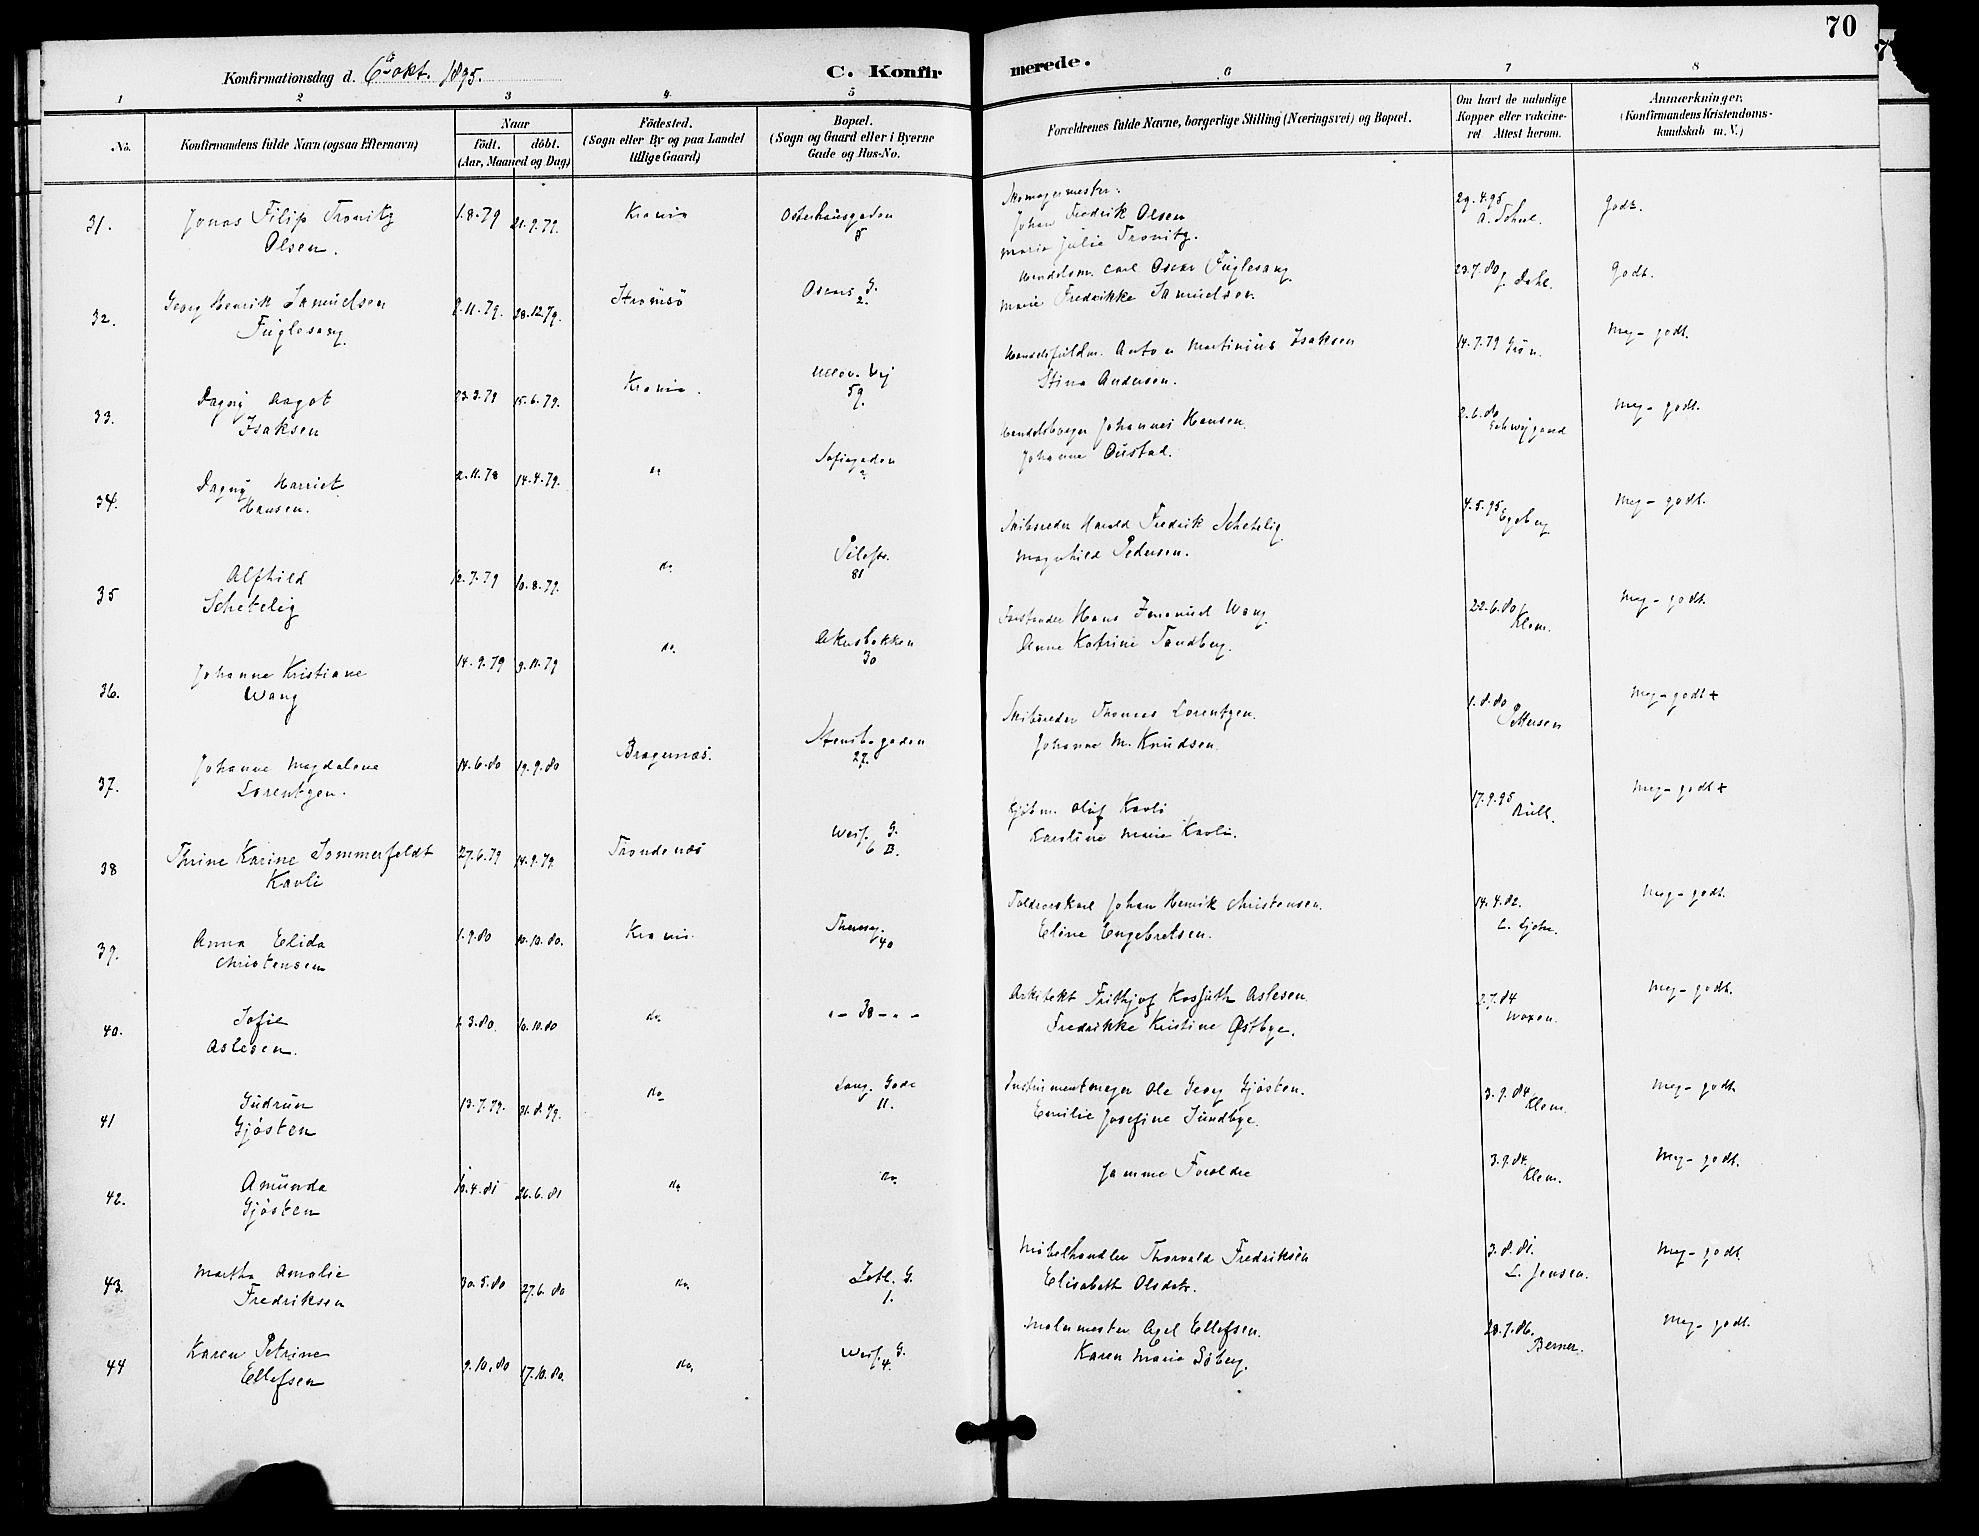 70
Konfirmationsdag d. 6 okt. 1895.
C. Konfir
merede.
1 2 3 4 5 6 7 8
No.
Konfirmandens fulde Navn (ogsaa Efternavn)
Naar
født. døbt.
(Aar, Maaned og Dag)
Födested.
(Sogn eller By og paa Landet
tillige Gaard)
Bopæl.
(Sogn og Gaard eller i Byerne
Gade og Hus-No.
Forældrenes fulde Navne, borgerlige Stilling (Næringsvei) og Bopæl.
Om havt de naturlige
Kopper eller vakcine-
ret Attest herom.
Anmærkninger.
(Konfirmandens Kristendoms-
kundskab m. V.)
31. Jonas Filip Tronitz 1.8.79 21.9.79. Krania Osterhausgaden Skomagermester 29.4.95 godt.
Olsen. 5 Johan Fredrik Olsen
Maria Julie Tronitz.
32. Georg Henrik Samuelsen 9.11.79. 28.12.79. Strömsö Oscars G. Handelsm. Carl Oscar Fuglesang 23.7.80 J. Dahl. godt.
Fuglesang 2. Marie Fredrikke Samuelsen
33. Dagny Dagot 15.6.79. Krania. Ullev. Vej Handelsfuldm. Anton Martinius Isaksen 14.7.79 Meg - godt.
Isaksen 59. Stina Andersen.
34. Dagny Harriet 2.11.78 14.4.79. do Sofiegaden Johannes Hansen. 2.6.80 Schwijgaard Meg - godt.
Hansen. Johanne Oustad.
35 Alfhild 12.7.79 10.8.79. do Pilestr. Skibsreder Harald Fredrik Schetelig 4.5.95 Egeberg Meg - godt.
Schetelig 81 Magnhild Pedersen.
36. Johanne Kristiane 14.9.79 9.11.79 do. Akersbakken Forstander Hans Immanuel Wang 22.6.80 Klem. Meg - godt.
Wang 30 Anne Katrine Sandberg.
37. Johanne Magdalene 14.6.80 19.9.80 Bragernæs. Stensbgaden Skibsreder Thomas Lorentzen. 1.8.80 Pettersen Meg - godt +
Lorentzen. 27. Johanne M. Knudsen.
38 Thrine Karine Sommerfeldt 27.6.79 14.9.79. Trondenæs Werf. G. Kjöbm. Oluf Kavli 17.9.95 Meg - godt +
Kavli 6 B. Karoline Marie Kavli.
39. Anna Elida 1.9.80 10.10.80. Krania Thereseg. Toldrorskarl Johan Henrik Christensen. 14.4.82. Meg - godt.
Christensen 40 Eline Engebretsen.
40. Sofie 2.3.80. 10.10.80 do " - 38 - " - Arkitekt Frithjof Kossuth Aslesen. 2.7.84 Meg - godt.
Aslesen. Fredrikke Kristine Østbye.
41 Gudrun 13.7.79. 31.8.79. do Lang. Gade Instrumentmager Ole Georg Gjösten. 3.9.84 Klem. Meg - godt.
Gjösten 11. Emilie Josefine Sundbye.
42. Amunda 10.4.81 26.6.81 do do. Samme Foræeldre 3.9.84. Klem. Meg - godt.
Gjösten
43. Martha Amalie 30.5.80 27.6.80 do. Zetl. G. Möbelhandler Thorvald Fredriksen 3.8.81. L. Jensen. Meg - godt.
Fredriksen 1. Elisabeth Olsdtr.
44 Karen Petrine 9.10.80 17.10.80. do. Werf. G. Malermester Axel Ellefsen. 28.7.86. Berner. Meg - godt.
Ellefsen 4. Karen Marie Söberg.